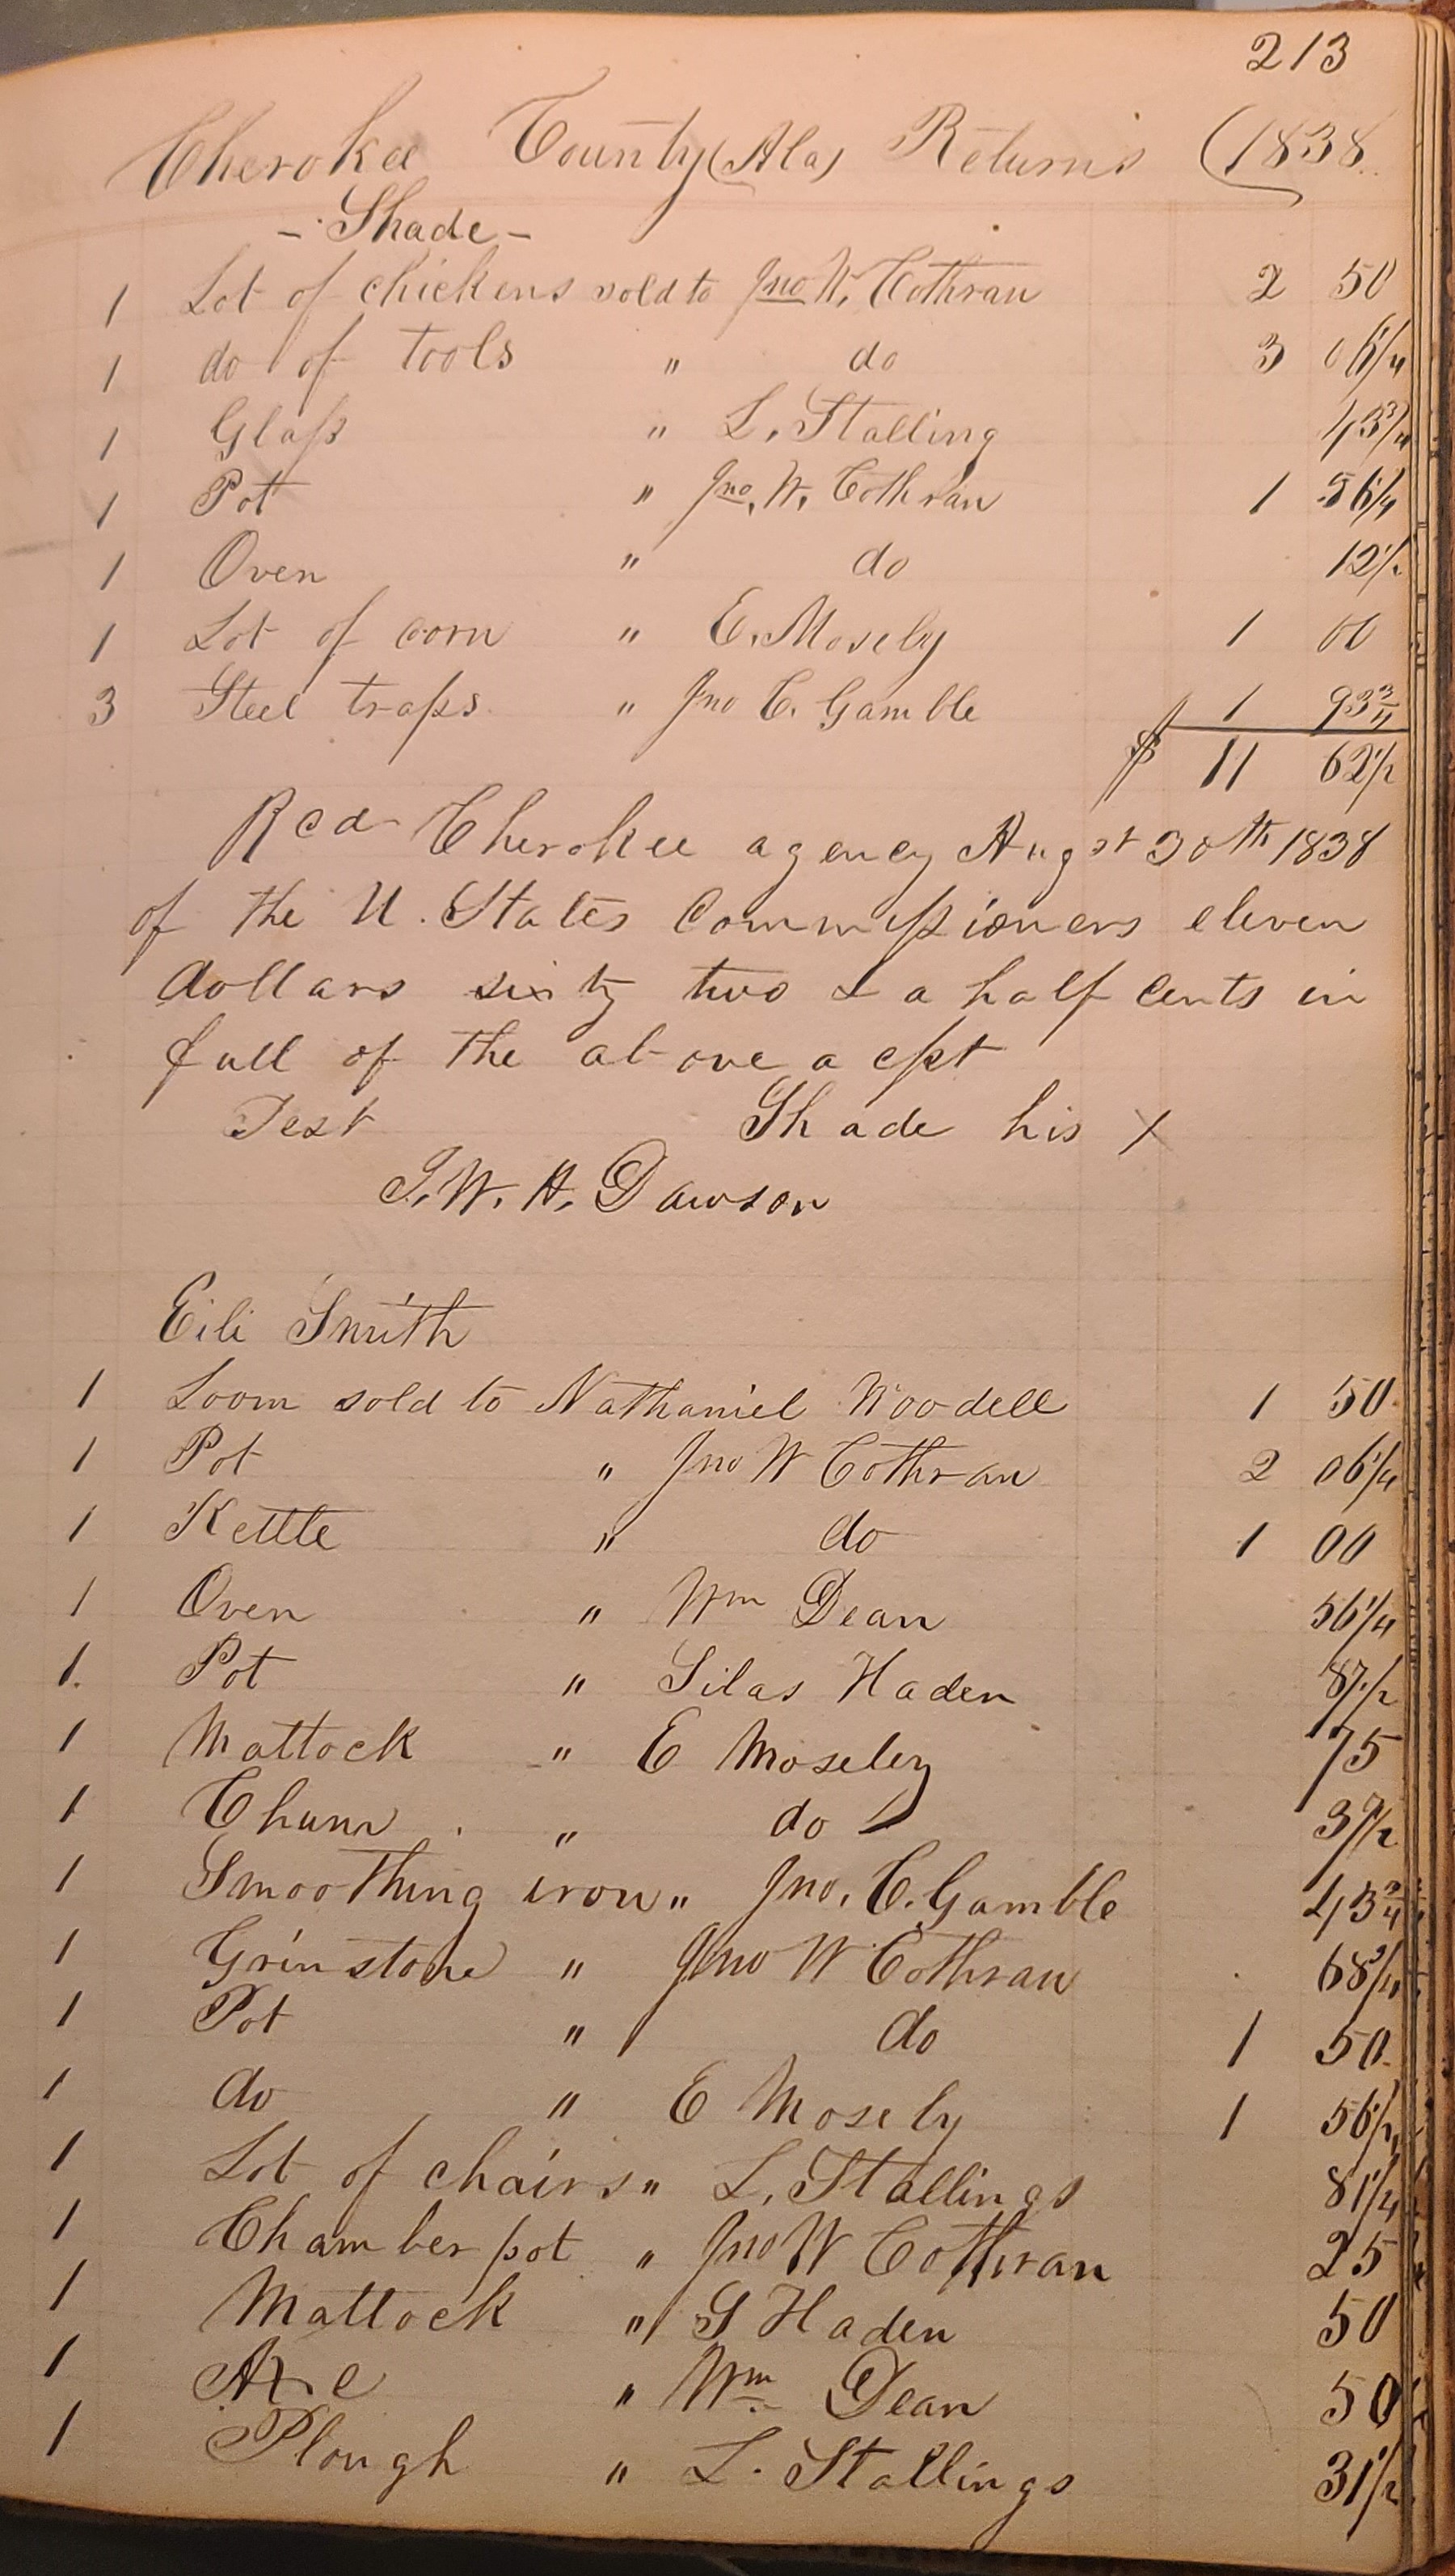 213
Cherokee County (Ala) Returns (1838
- Shade -
1 Lot of chickens sold to Jno W. Cothran 2 50
1 do of tools " do 3 06 1/4
1 Glass " L. Stalling 43 3/4
1 Pot " Jno. W. Cothran 1 56 1/4
1 Oven " do 12 1/2
1 Lot of corn " E. Mosely 1 00
3 Steel traps " Jno C. Gamble 1 93 3/4
$ 11 62 1/2
Rcd Cherokee agency Augst 30th 1838
of the U. States Commissioners eleven
dollars sixty two & a half cents in
full of the above acpt
Test Shade his X
J. W. H. Dawson
Eili Smith
1 Loom sold to Nathaniel Woodell 1 50
1 Pot " Jno W Cothran 2 06 1/4
1 Kettle " do 1 00
1 Oven " Wm Dean 56 1/4
1. Pot " Silas Haden 87 1/2
1 Mattock " E Moseley 75
1 Churn " do 37 1/2
1 Smoothing iron " Jno. C. Gamble 43 3/4
1 Grinstone " Jno W Cothran 68 3/4
1 Pot " do 1 50
1 do " E Mosely 1 56 1/2
1 Lot of chairs " L. Stallings 81 1/4
1 Chamber pot " Jno W Cothran 25
1 Mattock " S Haden 50
1 Axe " Wm Dean 50
1 Plough " L. Stallings 31 1/2